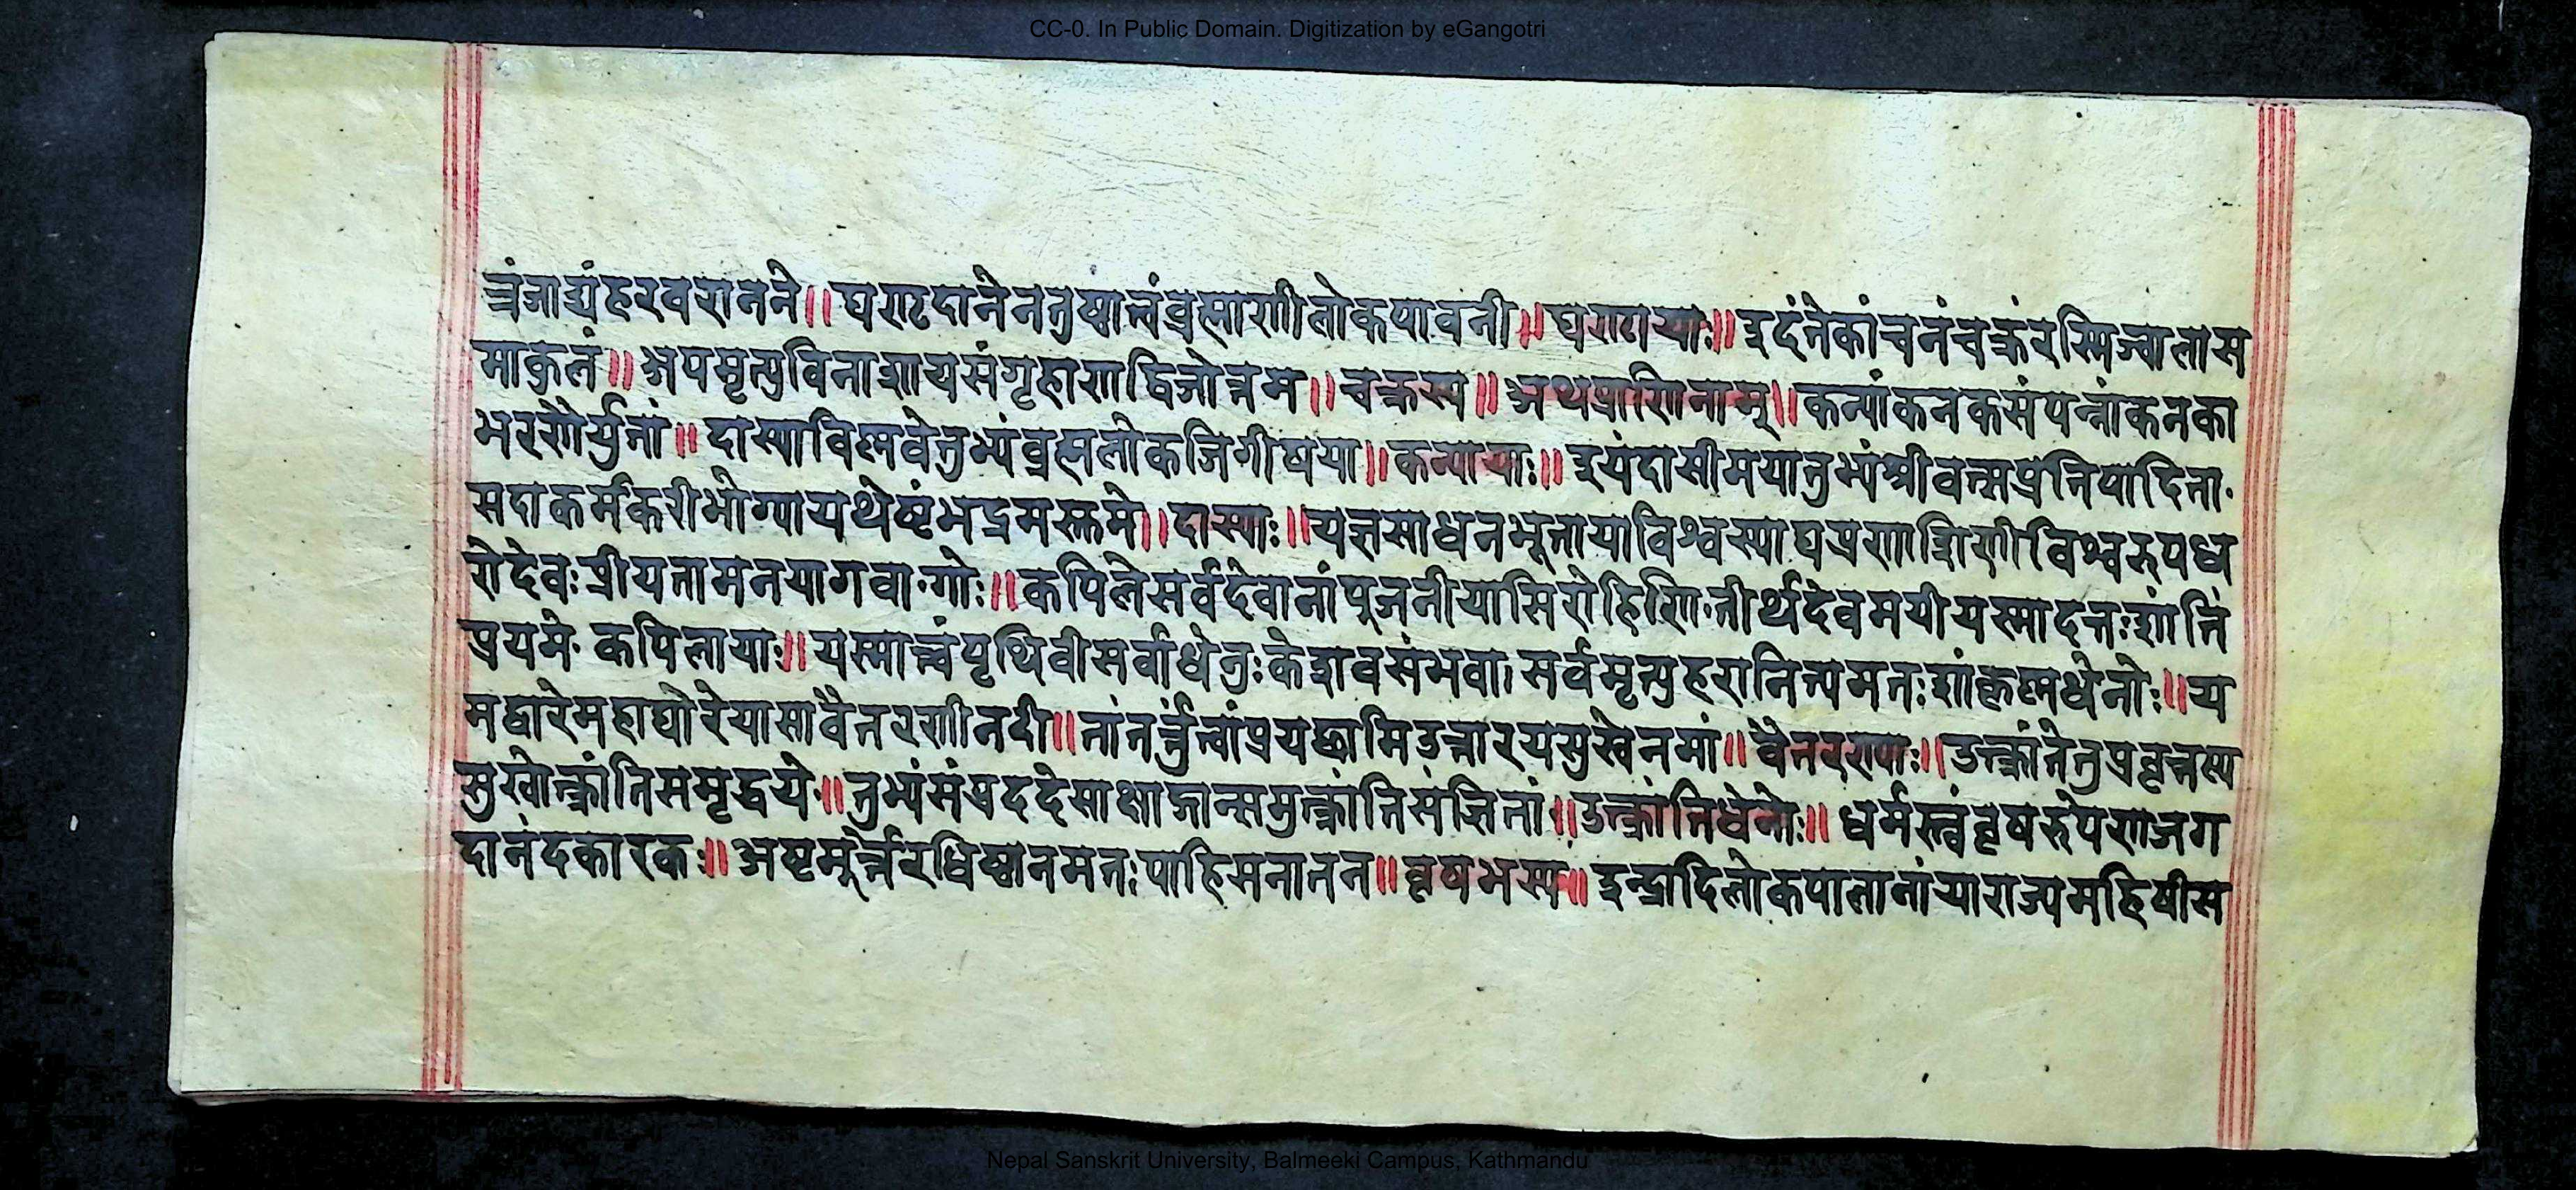 CC-0. In Public Domain. Digitization by eGangotri
त्वंजाड्यंहरवरानने॥ घण्टादानेनतुष्टात्वंब्रह्माणीलोकपावनी॥ घण्टायाः॥ इदंतेकांचनंचक्रंरस्मिज्वालास
माकुलं॥ अपमृत्युविनाशायसंगृहाणद्विजोत्तम॥ चक्रस्य॥ अथप्राणिनाम्॥ कन्यांकनकसंपन्नांकनका
भरणैर्युतां॥ दास्याविष्णवेतुभ्यंब्रह्मलोकजिगीषया॥ कन्यायाः॥ इयंदासीमयातुभ्यंश्रीवत्सप्रतिपादिता॰
सदाकर्मकरीभोग्यायथेष्टंभद्रमस्तुमे॥ दास्याः॥ यज्ञसाधनभूतायाविश्वस्याघप्रणाशिणीविश्वरूपध
रोदेवः प्रीयतामनयागवा॰गोः॥ कपिलेसर्वदेवानांपूजनीयासिरोहिणि॰तीर्थदेवमयीयस्मादतःशांतिं
प्रयमे॰ कपिलायाः॥ यस्मात्त्वंपृथिवीसर्वाधेनुःकेशवसंभवा। सर्वमृत्युहरानित्यमतःशां॰कृष्णधेनोः॥ य
मद्वारेमहाघोरेयासावैतरणीनदी॥ तांतर्त्तुंत्वांप्रयछामिउत्तारयसुखेनमां॥ वैतरण्याः॥ उत्क्रांतेतुप्रवृत्तस्य
सुखोत्क्रांतिसमृद्धये॥ तुभ्यंसंप्रददेसाक्षाज्ञान्समुत्क्रांतिसंज्ञितां॥ उत्क्रांतिधेनोः॥ धर्मस्त्वंवृषरूपेणजग
दानंदकारकः॥ अष्टमूर्त्तेरधिष्ठानमतःपाहिसनातन॥ वृषभस्य॥ इन्द्रादिलोकपालानांयाराज्यमहिषीस
Nepal Sanskrit University, Balmeeki Campus, Kathmandu